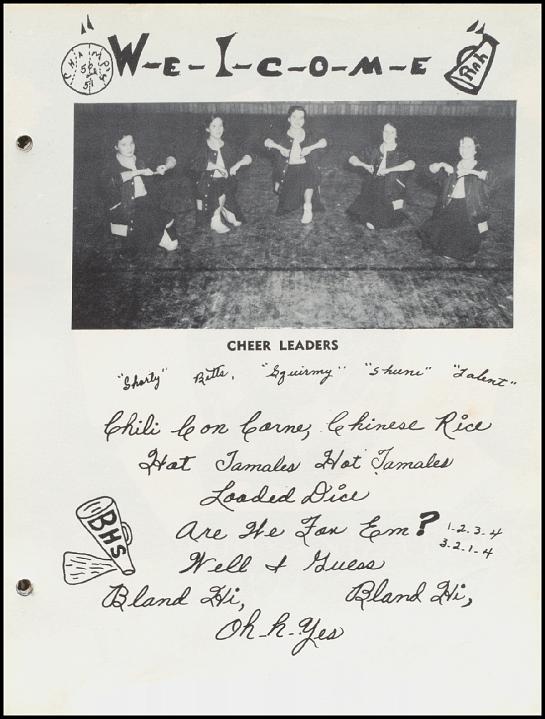 "W-E-L-C-O-M-E"
CHAMPS
50
51
Rah
CHEER LEADERS
"Shorty" Betts, "Squirmy" "Shuni" "Talent"
Chili Con Carne, Chinese Rice
Hot Tamales Hot Tamales
Loaded Dice
Are We For Em? 1-2-3-4
3-2-1-4
BHS
Well I Guess
Bland Hi, Bland Hi,
Oh-h-Yes